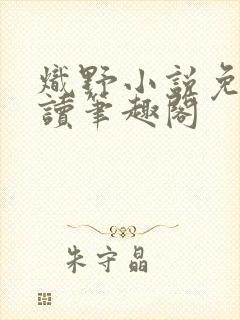 熾野小說免
讀筆趣閣
朱守晶